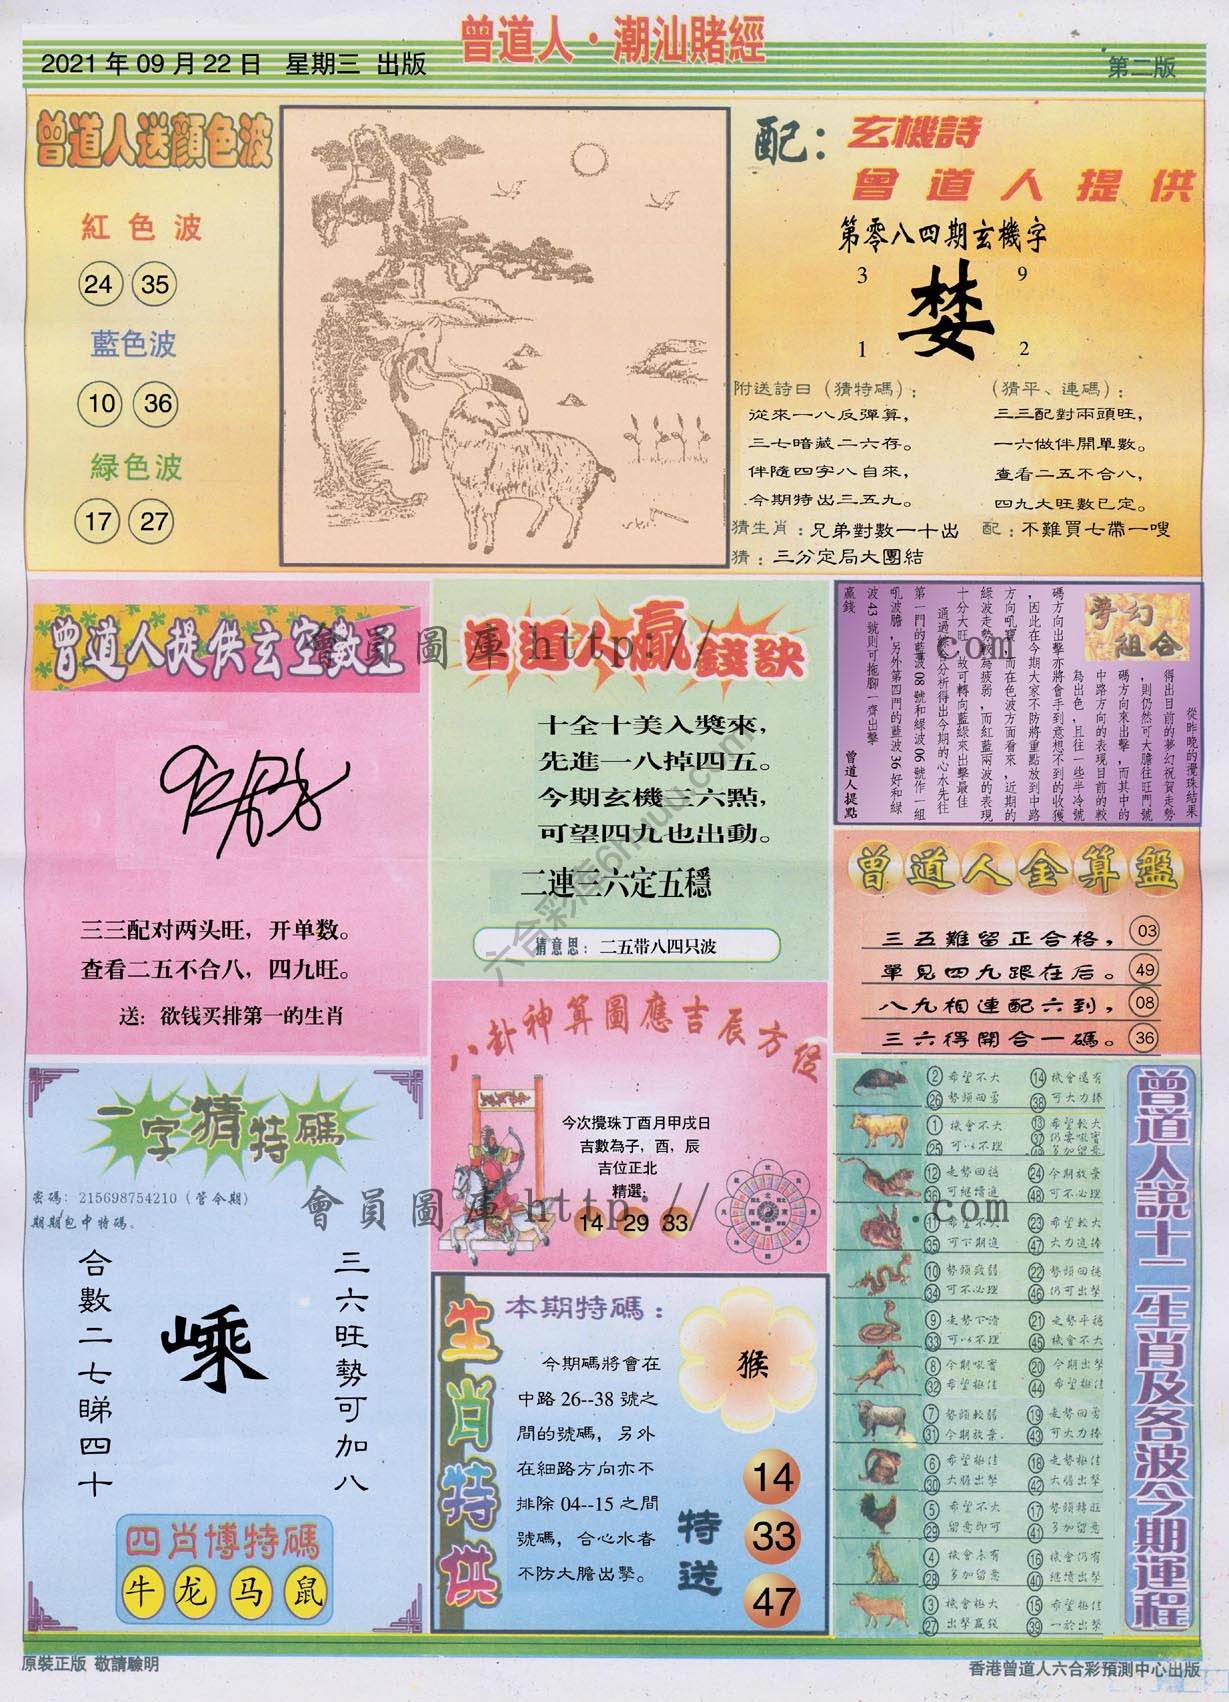 曾道人·潮汕賭經
2021年09月22日 星期三 出版
第二版
曾道人送顔色波
紅色波
24 35
藍色波
10 36
緑色波
17 27
配：玄機詩
曾道人提供
第零八四期玄機字
3 9
婪
1 2
附送詩日（猜特碼）：
從來一八反彈算，
三七暗藏二六存。
伴隨四字八自來，
今期特出三五九。
（猜平、連碼）：
三三配對兩頭旺，
一六做伴開單數。
查看二五不合八，
四九大旺數已定。
猜生肖：兄弟對數一十出
配：不難買七帶一嗖
猜：三分定局大團結
曾道人提供玄空數王
三三配对两头旺，开单数。
查看二五不合八，四九旺。
送：欲钱买排第一的生肖
曾道人贏錢訣
十全十美入獎來，
先進一八掉四五。
今期玄機三六點，
可望四九也出動。
二連三六定五穩
猜意思：二五带八四只波
夢幻組合
從昨晚的攪珠結果
得出目前的夢幻祝賀走勢
，則仍然可大膽往旺門號
碼方向來出擊，而其中的
中路方向的表現目前的較
為出色，且往一些半冷號
碼方向出擊亦將會手到意想不到的收獲
，因此在今期大家不防將重點放到中路
方向吼寶，而在色波方面看來，近期的
綠波走勢較為疲弱，而紅藍兩波的表現
十分大旺，故可轉向藍綠來出擊最佳
通過綜合分析得出今期的心水先往
第一門的藍波08號和綠波06號作一組
吼波膽，另外第四門的藍波36好和綠
波43號則可拖腳一齊出擊
贏錢
曾道人提點
曾道人金算盤
三五難留正合格， 03
單見四九跟在后。 49
八九相連配六到， 08
三六得開合一碼。 36
八卦神算圖應吉辰方位
今次攪珠丁酉月甲戌日
吉數為子，酉，辰
吉位正北
精選：
14 29 33
一字猜特碼
密碼：215698754210（管今期）
期期包中特碼。
三六旺勢可加八
嵊
合數二七睇四十
四肖博特碼
牛 龙 马 鼠
生肖特供
本期特碼：
猴
今期碼將會在
中路26--38號之
間的號碼，另外
在細路方向亦不
排除04--15之間
號碼，合心水者
不防大膽出擊。
特送
14
33
47
曾道人說十二生肖及各波今期運程
2 希望不大 14 機會還有
26 勢頭回勇 38 可大力捧
1 機會不大 13 希望較大
37 仍要吼實
25 可以不理
12 走勢回穩 24 今期放棄
36 可繼續進 48 可不必理
11 希望不大 23 希望較大
35 可下期進 47 大力進捧
10 勢頭疲弱 22 勢頭回穩
34 可不必理 46 仍可出擊
9 走勢下滑 21 走勢平穩
33 可以不理 45 機會不大
8 今期吼實 20 今期出擊
32 希望極佳 44 希望極佳
7 勢頭較弱 19 走勢回勇
31 今期放棄 43 可大力捧
6 希望極佳 18 走勢極佳
30 大膽出擊 42 大膽出擊
5 希望不大 17 勢頭轉旺
29 留意即可 41 多加留意
4 機會未有 16 機會仍有
28 多加留意 40 繼續出擊
3 機會極大 15 希望極佳
27 出擊贏錢 39 一於出擊
會員圖庫 http:// .com
會員圖庫 http:// .com
原裝正版 敬請驗明
香港曾道人六合彩預測中心出版